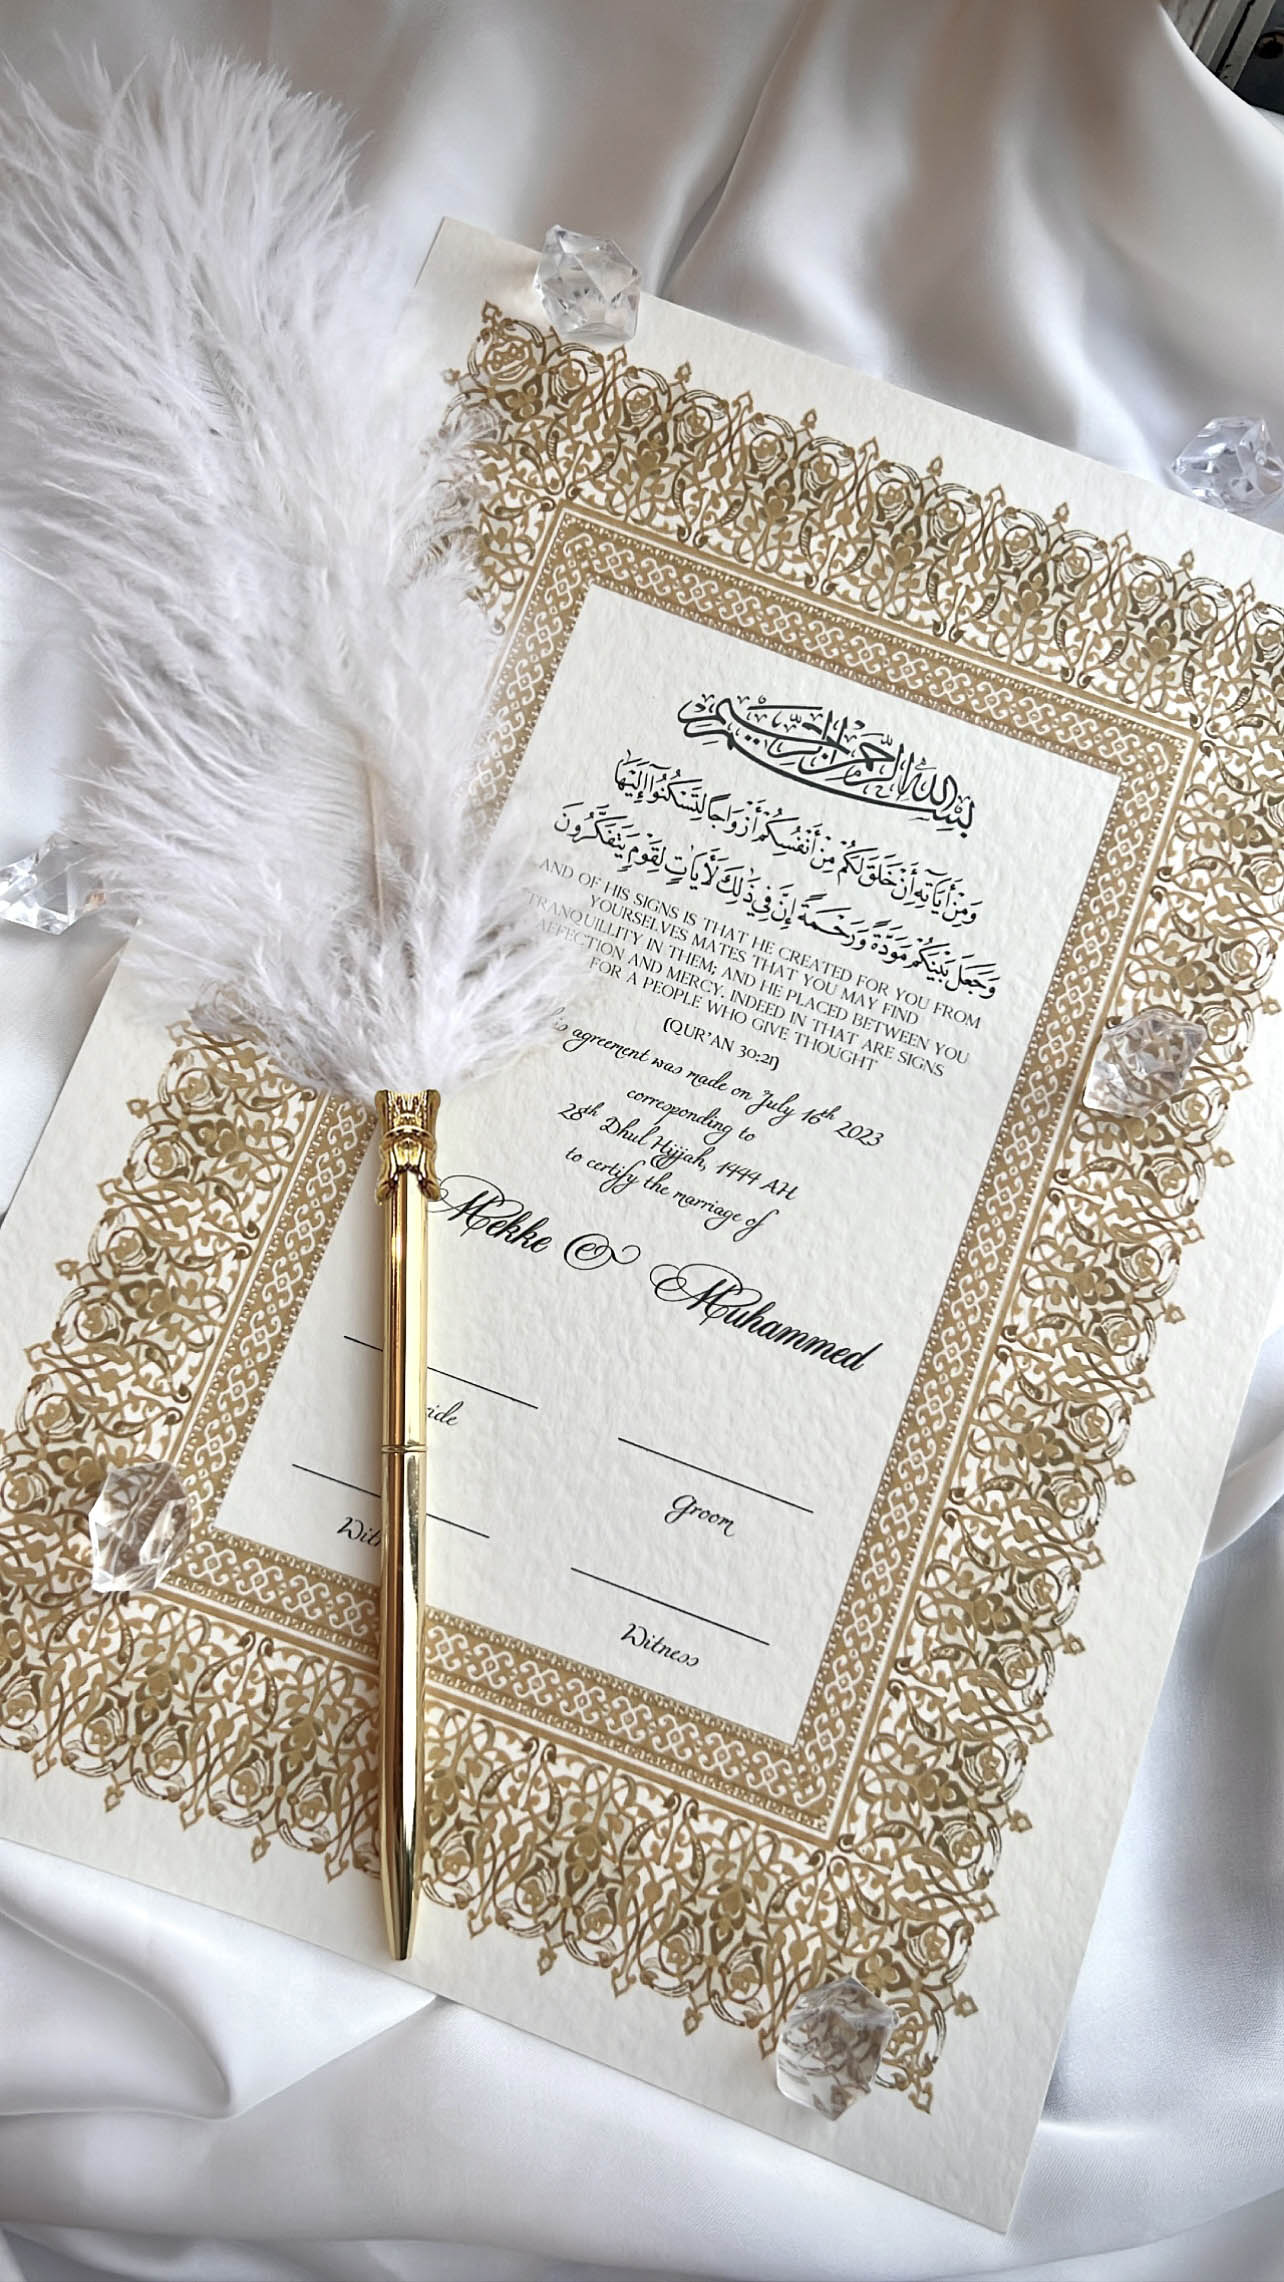 بِسْمِ اللهِ الرَّحْمٰنِ الرَّحِيمِ
وَمِنْ آيَاتِهِ أَنْ خَلَقَ لَكُمْ مِنْ أَنْفُسِكُمْ أَزْوَاجًا لِتَسْكُنُوا إِلَيْهَا
وَجَعَلَ بَيْنَكُمْ مَوَدَّةً وَرَحْمَةً إِنَّ فِي ذَٰلِكَ لَآيَاتٍ لِقَوْمٍ يَتَفَكَّرُونَ
AND OF HIS SIGNS IS THAT HE CREATED FOR YOU FROM
YOURSELVES MATES THAT YOU MAY FIND
TRANQUILLITY IN THEM; AND HE PLACED BETWEEN YOU
AFFECTION AND MERCY. INDEED IN THAT ARE SIGNS
FOR A PEOPLE WHO GIVE THOUGHT
(QUR'AN 30:21)
agreement was made on July 16th 2023
corresponding to
28th Dhul Hijjah, 1444 AH
to certify the marriage of
Mekke & Muhammed
Groom
Witness